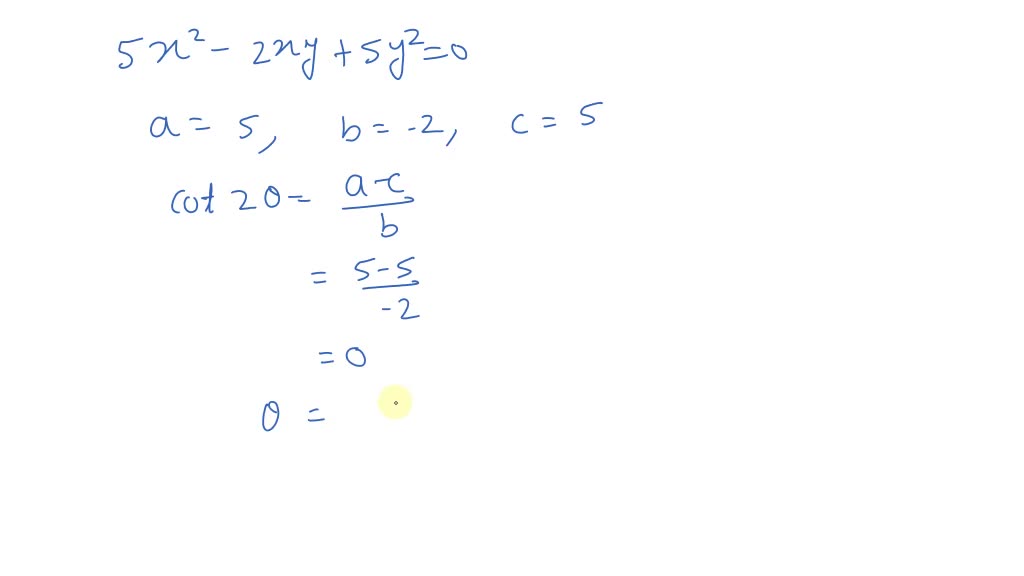 5x² - 2xy + 5y² = 0
a = 5, b = -2, c = 5
cot 2θ = a-c / b
= 5-5 / -2
= 0
θ =